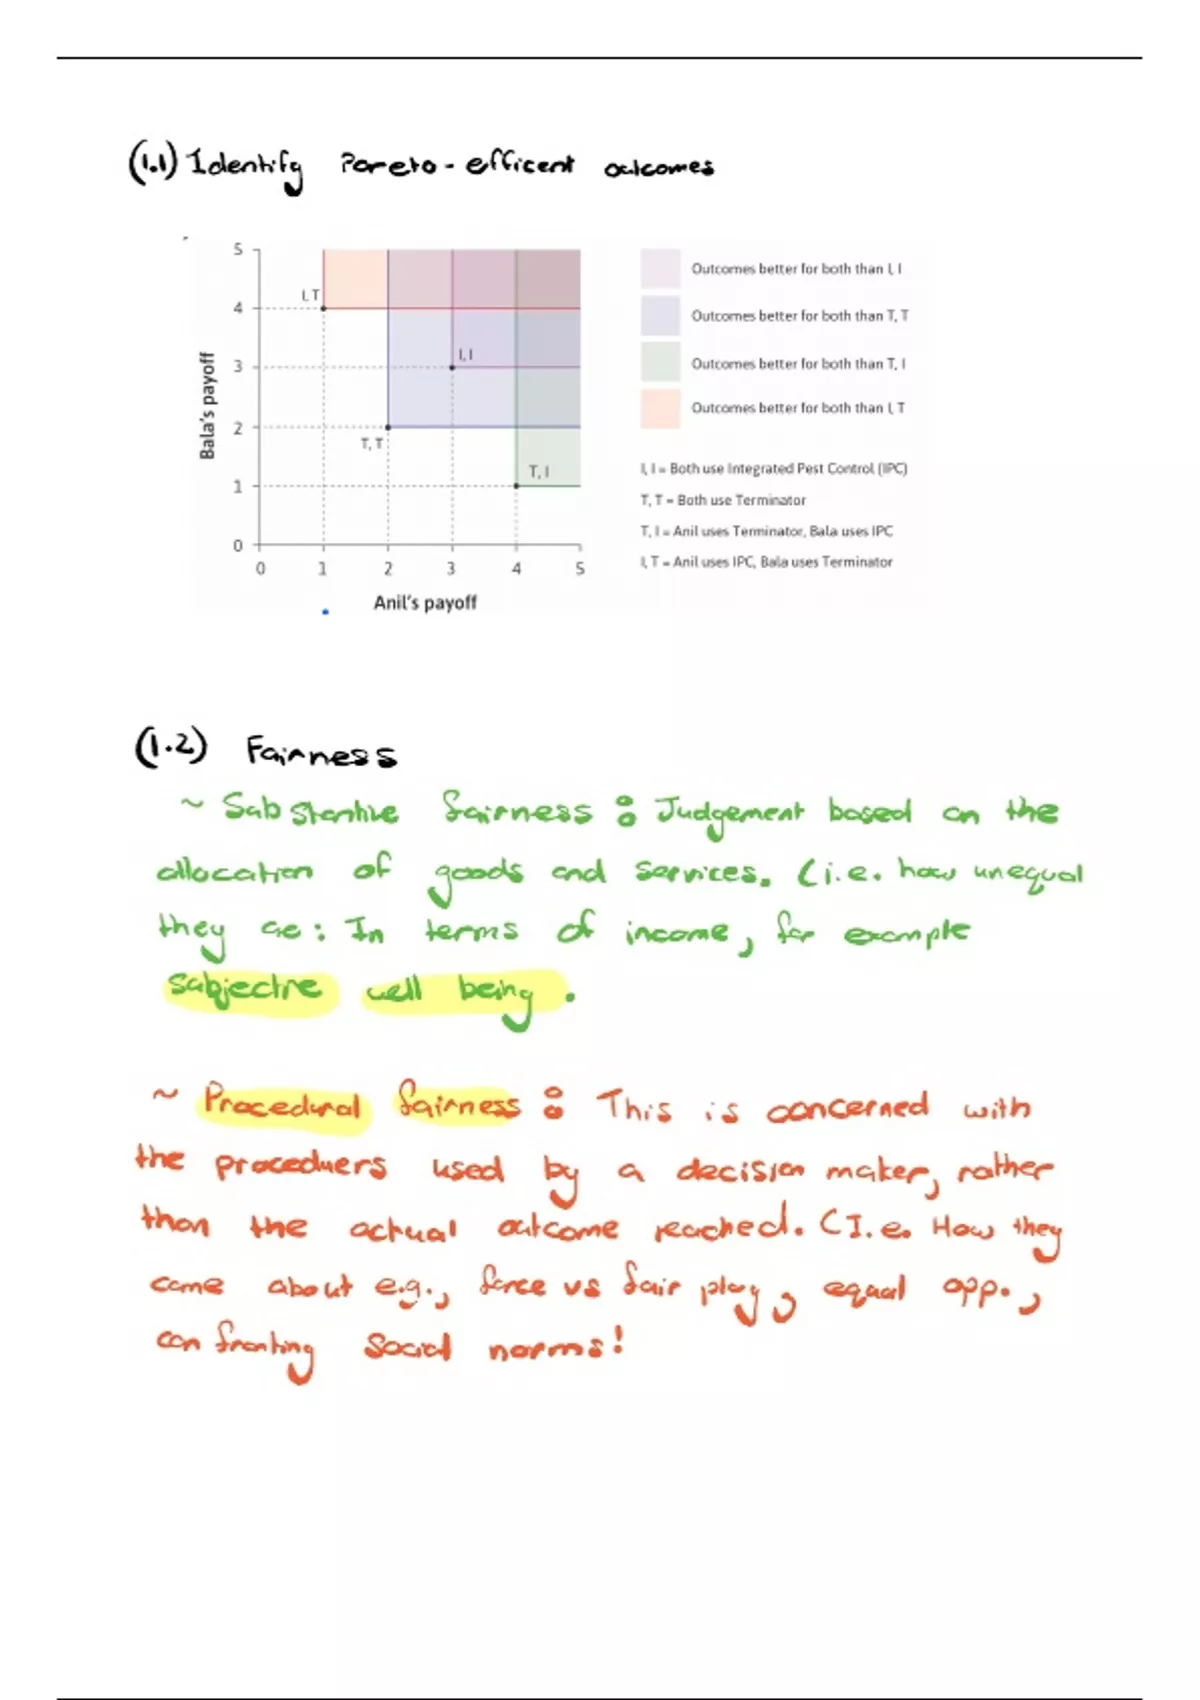 (1.1) Identify Pareto-efficent outcomes
5
4
3
2
1
0
0 1 2 3 4 5
Bala's payoff
Anil's payoff
I, T
I, I
T, T
T, I
Outcomes better for both than I, I
Outcomes better for both than T, T
Outcomes better for both than T, I
Outcomes better for both than I, T
I, I = Both use Integrated Pest Control (IPC)
T, T = Both use Terminator
T, I = Anil uses Terminator, Bala uses IPC
I, T = Anil uses IPC, Bala uses Terminator
(1.2) Fairness
~ Substantive fairness : Judgement based on the
allocation of goods and services. (i.e. how unequal
they ae: In terms of income, for example
subjective well being.
~ Procedural fairness : This is concerned with
the proceduers used by a decision maker, rather
than the actual outcome reached. (I.e. How they
came about e.g., force vs fair play, equal opp.,
confronting social norms!